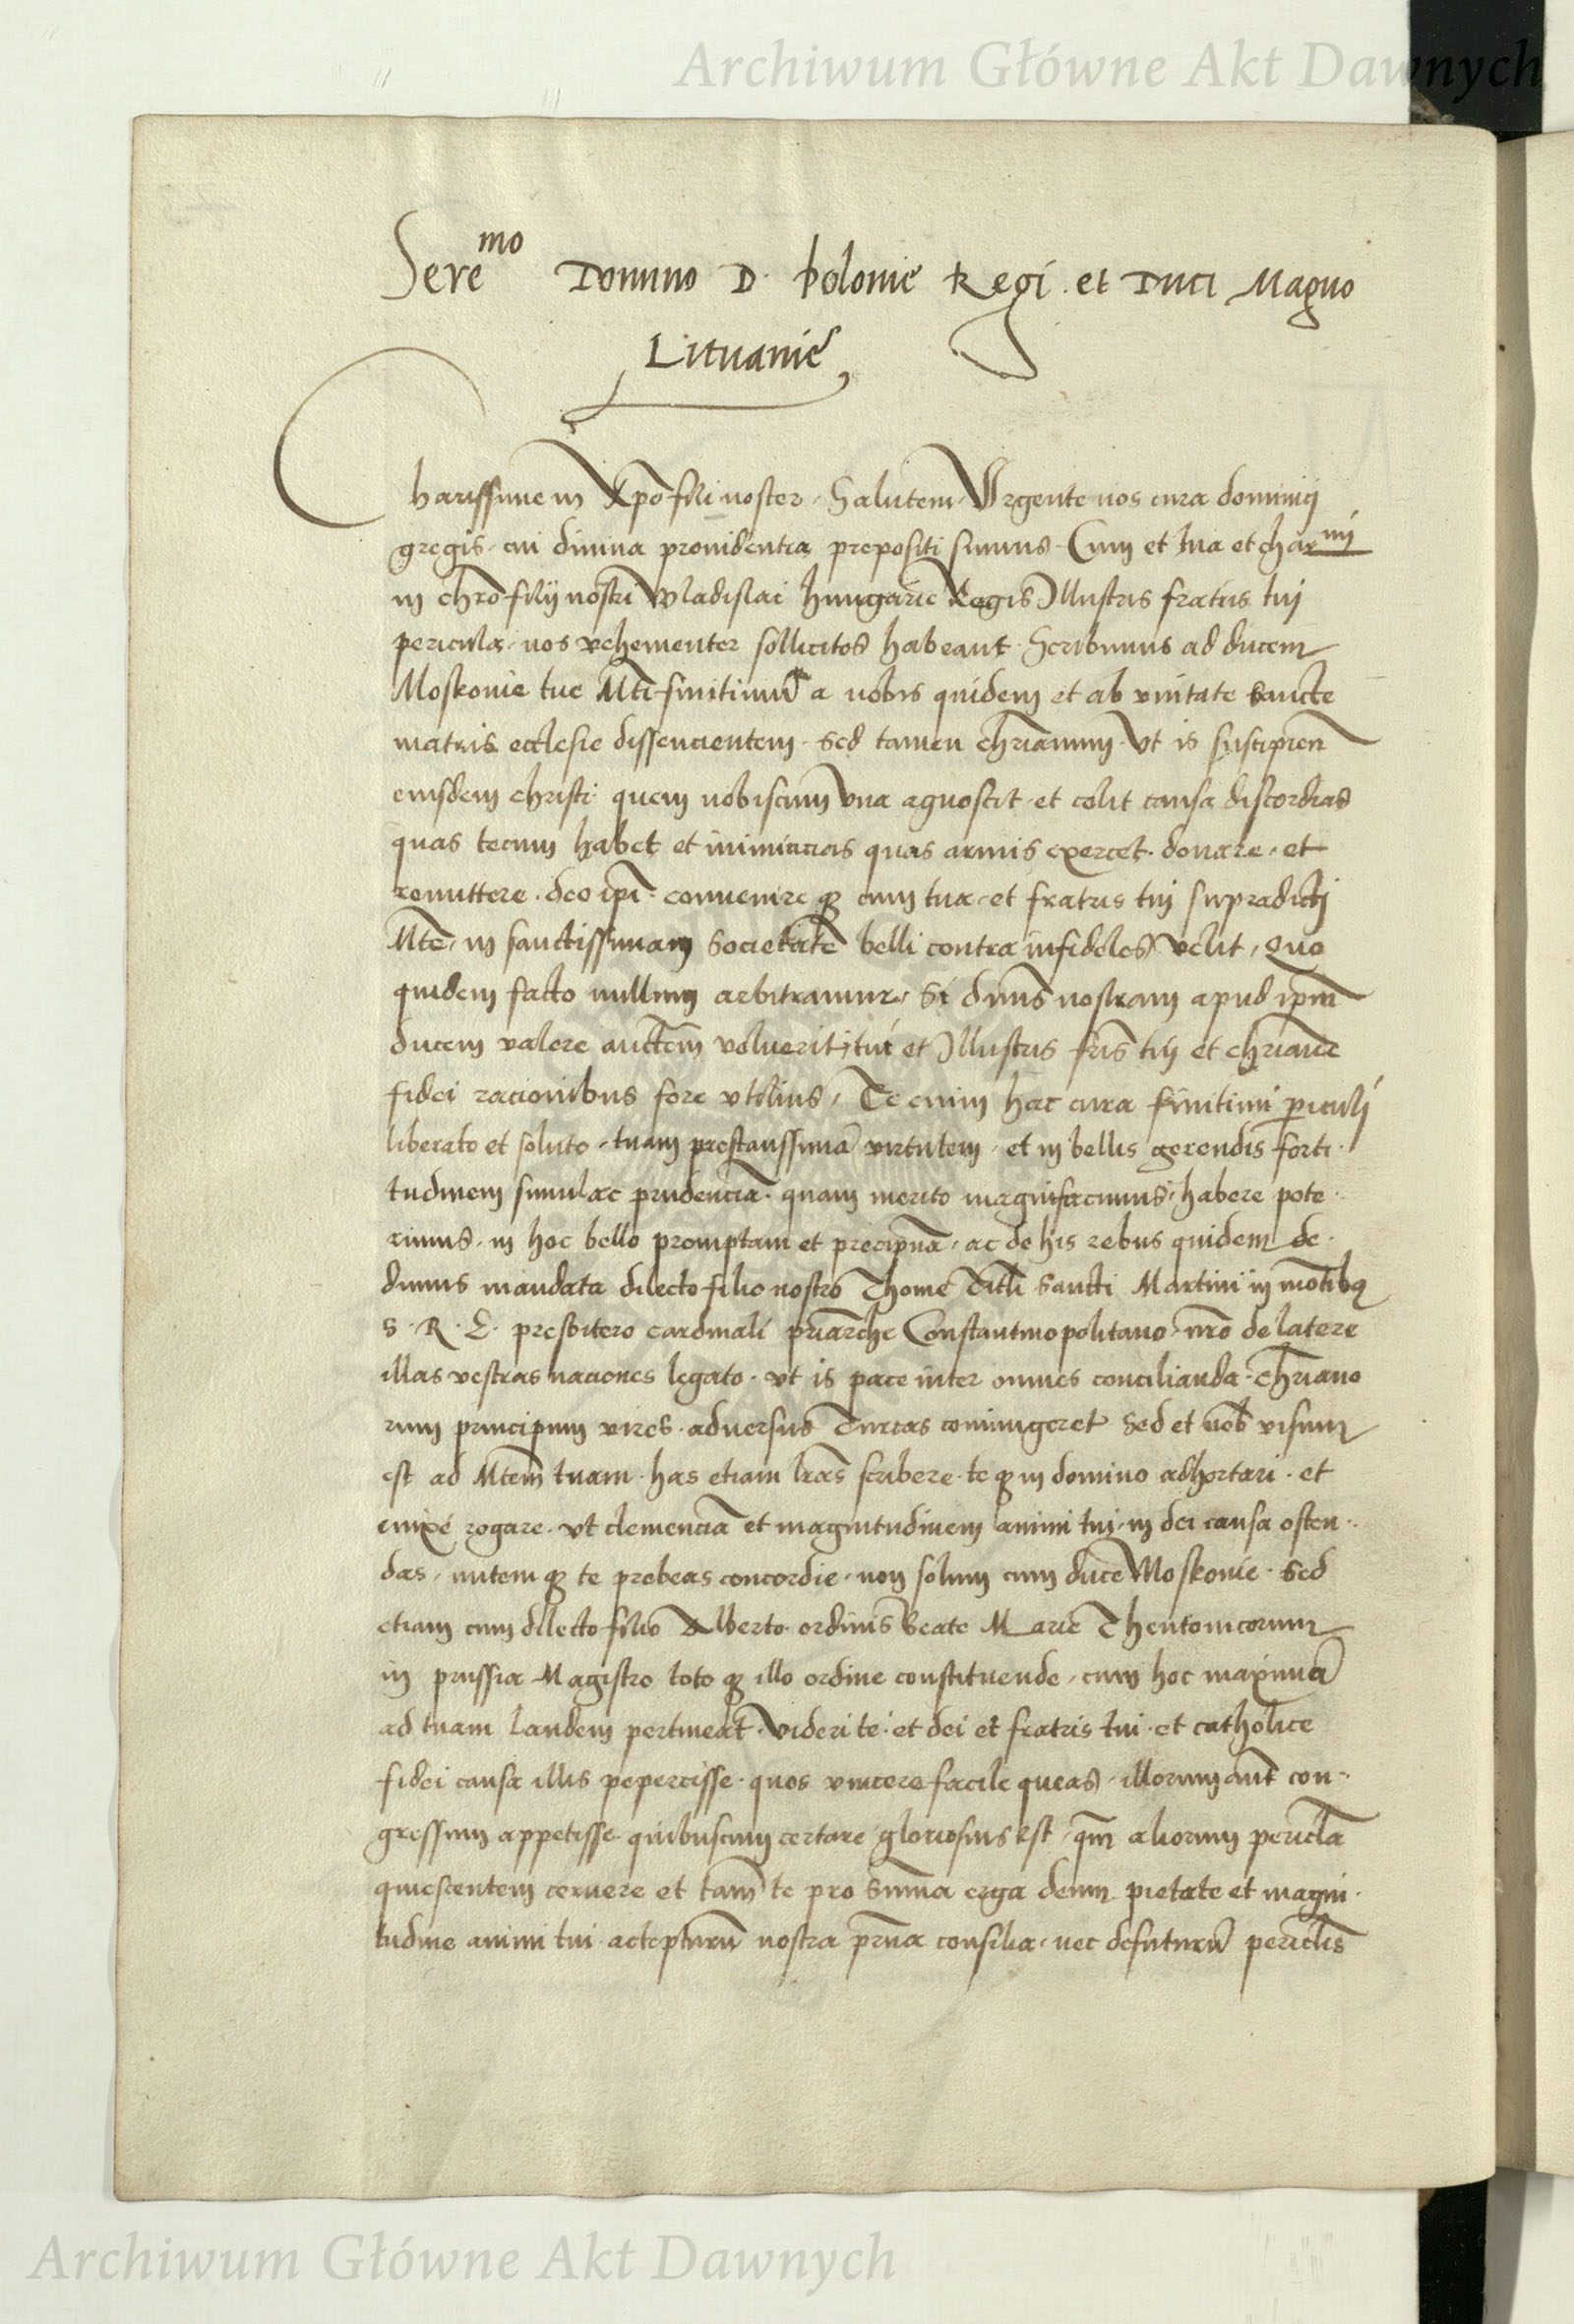 Archiwum Główne Akt Dawnych
Sere^mo Domino D. Polonie Regi et Duci Magno
Lituanie
Charissime in Xpo fili noster. Salutem. Urgente nos cura dominici
gregis, cui divina providentia prepositi sumus. Cum et tua et char^mi
in chro filij nostri Vladislai hungarie Regis Illustris fratris tuj
pericula, nos vehementer sollicitos habeant. Scribimus ad ducem
Moskovie tue Mti finitimū a nobis quidem et ab unitate sancte
matris ecclesie dissencientem. sed tamen chrianum. Ut is suscipien
eiusdem christi quem nobiscum una agnoscit et colit causa discordias
quas tecum habet et inimicicias quas armis exercet. donare, et
remittere. deo ipi. convenire q; cum tua et fratris tuj supradicti
Mte, in sanctissimam societatē belli contra infideles velit, Quo
quidem facto nullum arbitramur, si dnus nostram apud ipm
ducem valere auctem voluerit, tue et Illustris fris tuj et chriane
fidei racionibus fore utilius, Te enim hac cura finitimi periculi
liberato et soluto, tuam prestantissimā virtutem, et in bellis gerendis forti-
tudinem simulac prudenciā. quam merito magnifacimus, habere pote-
rimus, in hoc bello promptam et precipuā, ac de his rebus quidem de-
dimus mandata dilecto filio nostro Thome Titli Sancti Martini in motibq
S. R. E. presbitero cardinali priarche Constantinopolitano, nro de latere
illas vestras naciones legato. ut is pace inter omnes concilianda. chriano
rum principum vires. adversus Turcas coniungeret Sed et nob visum
est ad Mtem tuam. has etiam lras scribere. te q; in domino adhortari. et
enixe rogare. ut clemenciā et magnitudinem animi tui, in dei causa osten-
das, mitem q; te prebeas concordie, non solum cum duce Moskovie. Sed
etiam cum dilecto filio Alberto. ordinis beate Marie Theutonicorum
in prussia Magistro toto q; illo ordine constituende, cum hoc maximā
ad tuam laudem pertineat. videri te. et dei et fratris tui. et catholice
fidei causa illis pepercisse. quos vincere facile queas. illorum aut con-
gressum appetisse quibuscum certare gloriosius est, qm aliorum pericla
quiescentem cernere et tam te pro suma erga deum pietate et magni-
tudine animi tui accepturū nostra prna consilia, nec defuturū periclis
Archiwum Główne Akt Dawnych